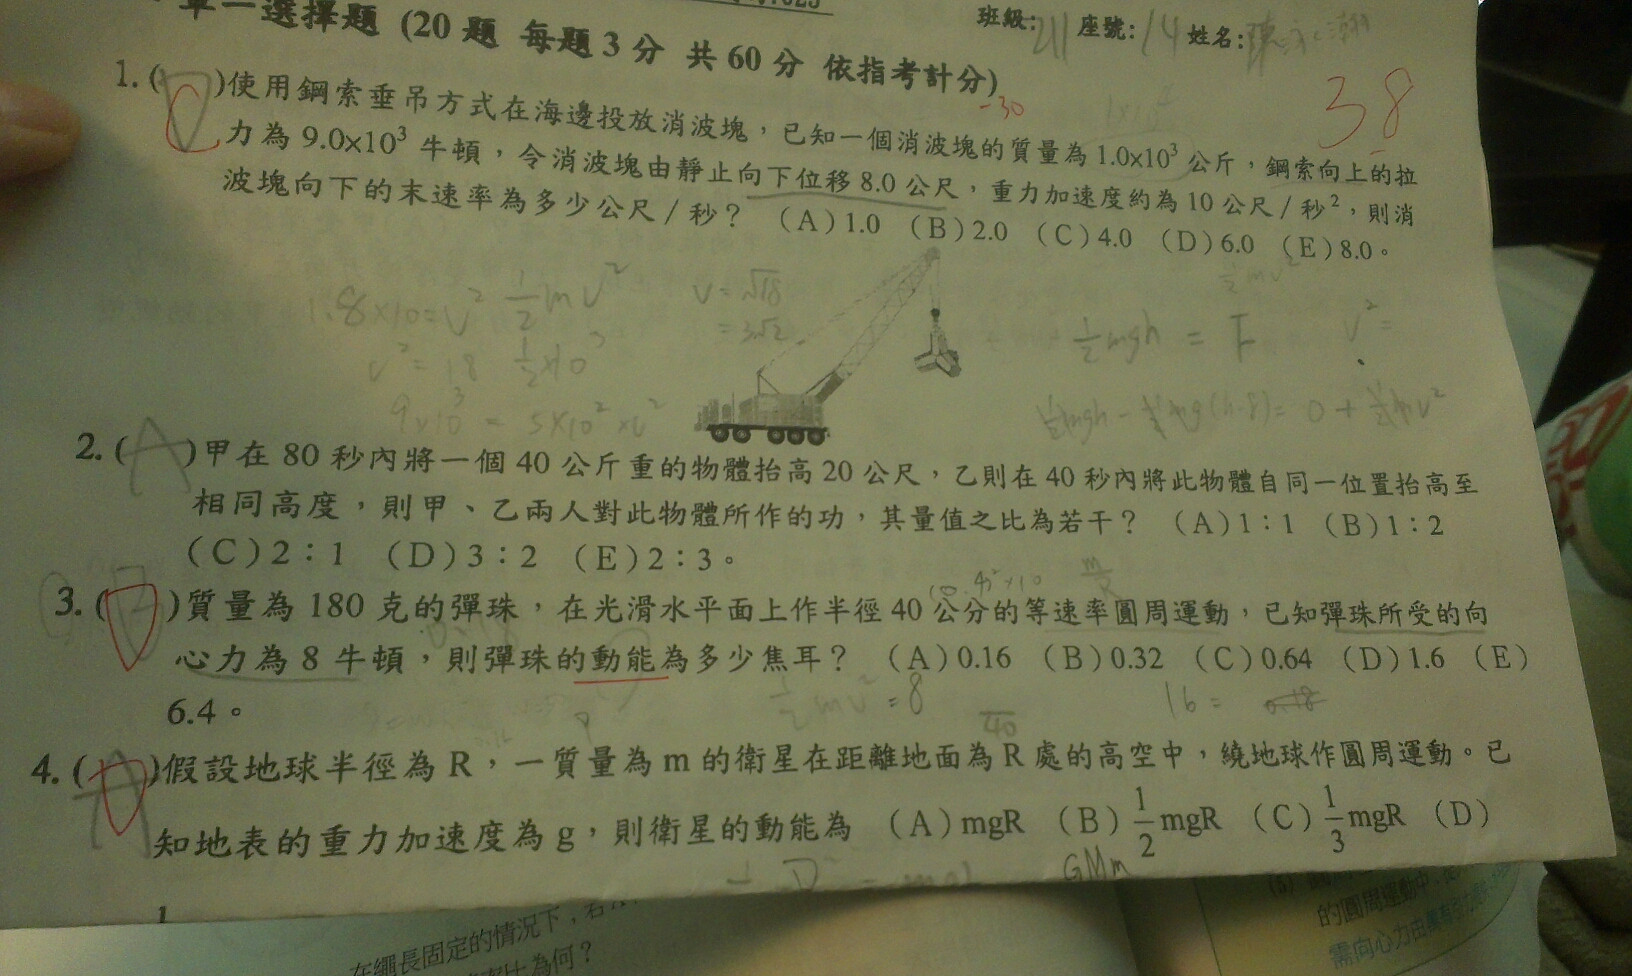 單一選擇題 (20 題 每題 3 分 共 60 分 依指考計分)
班級: 211 座號: 14 姓名: 陳
-30
38
1. ( D )使用鋼索垂吊方式在海邊投放消波塊，已知一個消波塊的質量為 1.0×10³ 公斤，鋼索向上的拉
C
力為 9.0×10³ 牛頓，令消波塊由靜止向下位移 8.0 公尺，重力加速度約為 10 公尺/秒²，則消
波塊向下的末速率為多少公尺/秒？ (A)1.0 (B)2.0 (C)4.0 (D)6.0 (E)8.0。
1.8×10=v² ½mv² v=√18
=3√2
v²=18 ½×10³
9×10³ = 5×10² ×v²
½mv²
½mgh = F v²=
2. ( A )甲在 80 秒內將一個 40 公斤重的物體抬高 20 公尺，乙則在 40 秒內將此物體自同一位置抬高至
相同高度，則甲、乙兩人對此物體所作的功，其量值之比為若干？ (A)1：1 (B)1：2
(C)2：1 (D)3：2 (E)2：3。
3. ( D )質量為 180 克的彈珠，在光滑水平面上作半徑 40 公分的等速率圓周運動，已知彈珠所受的向
心力為 8 牛頓，則彈珠的動能為多少焦耳？ (A)0.16 (B)0.32 (C)0.64 (D)1.6 (E)
6.4。
½mv²=8
40
16= 0.18
4. ( A D )假設地球半徑為 R，一質量為 m 的衛星在距離地面為 R 處的高空中，繞地球作圓周運動。已
知地表的重力加速度為 g，則衛星的動能為 (A)mgR (B)½mgR (C)⅓mgR (D)
GMm
1
在繩長固定的情況下，若
比為何？
的圓周運動中，
需向心力由